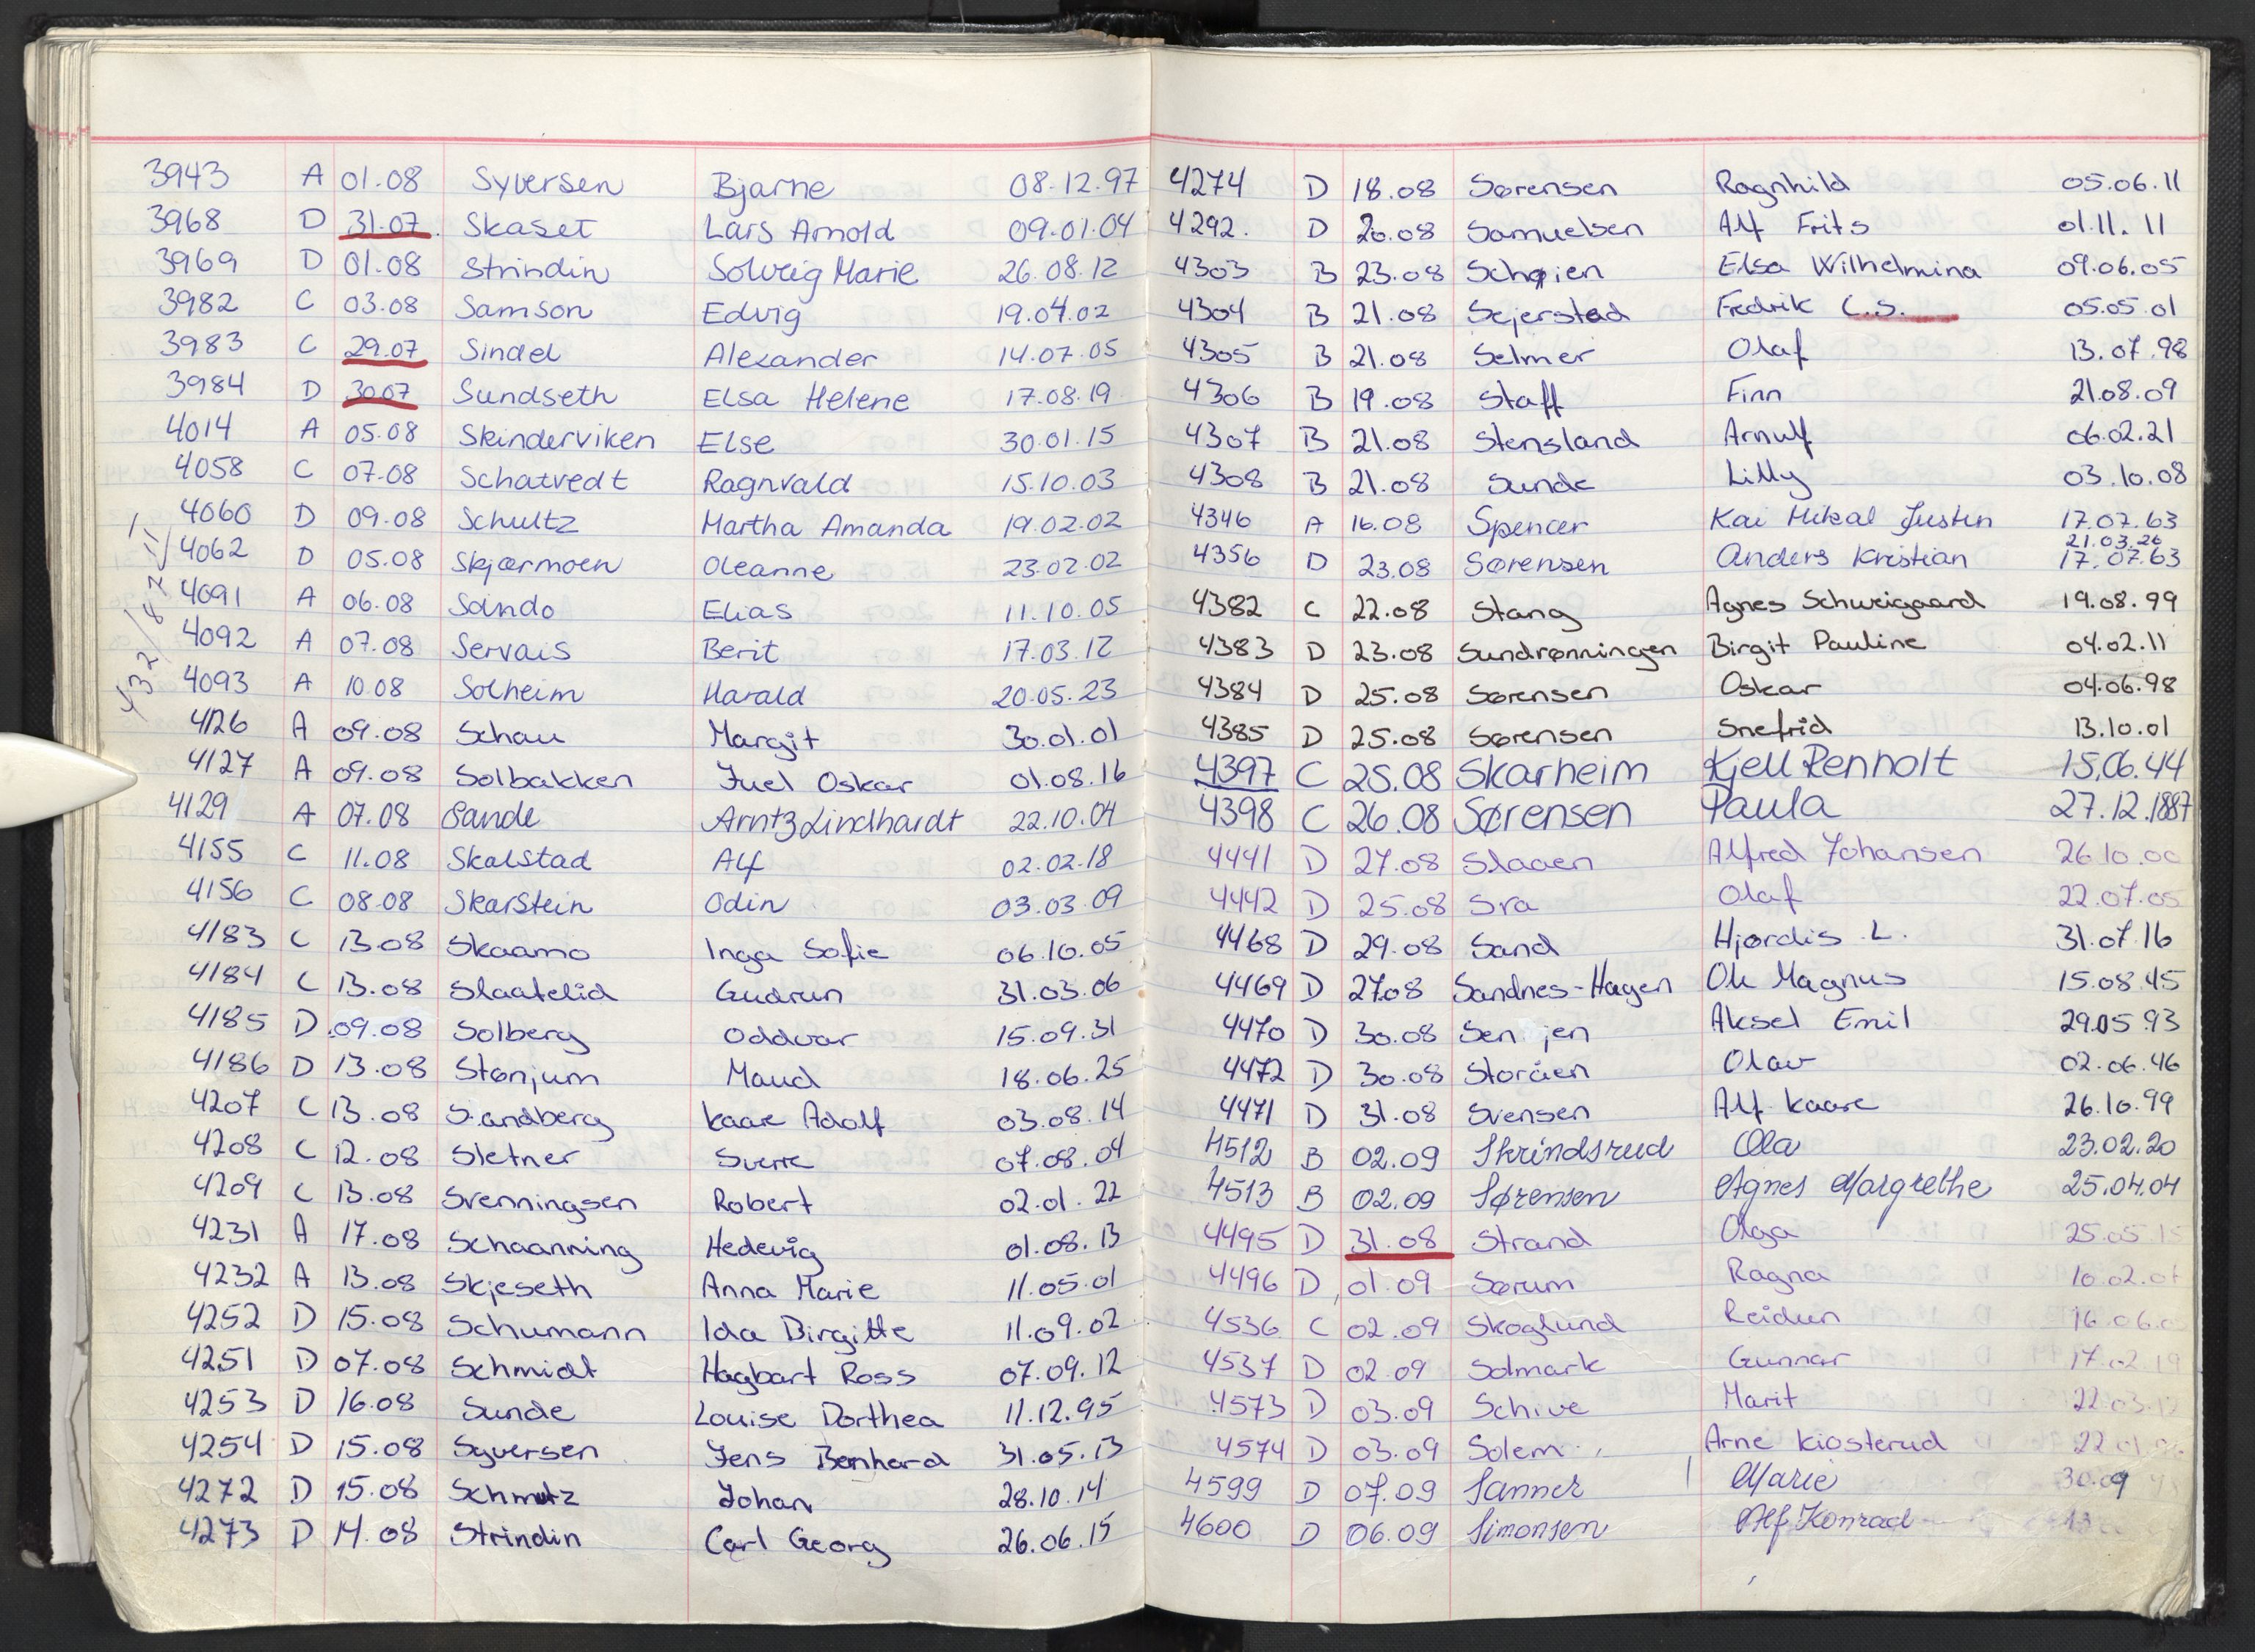 3943 A 01.08 Syversen Bjarne 08.12.97
3968 D 31.07. Skaset Lars Arnold 09.01.04
3969 D 01.08 Strindin Solveig Marie 26.08.12
3982 C 03.08 Samson Edvig 19.04.02
3983 C 29.07 Sindel Alexander 14.07.05
3984 D 30.07 Sundseth Elsa Helene 17.08.19
4014 A 05.08 Skinderviken Else 30.01.15
4058 C 07.08 Schatvedt Ragnvald 15.10.03
4060 D 09.08 Schultz Martha Amanda 19.02.02
4062 D 05.08 Skjærmoen Oleanne 23.02.02
4091 A 06.08 Sando Elias 11.10.05
4092 A 07.08 Servais Berit 17.03.12
4093 A 10.08 Solheim Harald 20.05.23
4126 A 09.08 Schau Margit 30.01.01
4127 A 09.08 Solbakken Juel Oskar 01.08.16
4129 A 07.08 Sande Arntz Lindhardt 22.10.04
4155 C 11.08 Skalstad Alf 02.02.18
4156 C 08.08 Skarstein Odin 03.03.09
4183 C 13.08 Skaamo Inga Sofie 06.10.05
4184 C 13.08 Slaatelid Gudrun 31.03.06
4185 D 09.08 Solberg Oddvar 15.09.31
4186 D 13.08 Stønjum Maud 18.06.25
4207 C 13.08 Sandberg Kaare Adolf 03.08.14
4208 C 12.08 Sletner Sverre 07.08.04
4209 C 13.08 Svenningsen Robert 02.01.22
4231 A 17.08 Schaanning Hedevig 01.08.13
4232 A 13.08 Skjeseth Anna Marie 11.05.01
4252 D 15.08 Schumann Ida Birgitte 11.09.02
4251 D 07.08 Schmidt Hagbart Ross 07.09.12
4253 D 16.08 Sunde Louise Dorthea 11.12.95
4254 D 15.08 Syversen Jens Bernhard 31.05.13
4272 D 15.08 Schmutz Johan 28.10.14
4273 D 14.08 Strindin Carl Georg 26.06.15
4274 D 18.08 Sørensen Ragnhild 05.06.11
4292. D 20.08 Samuelsen Alf Frits 01.11.11
4303 B 23.08 Schøien Elsa Wilhelmina 09.06.05
4304 B 21.08 Sejersted Fredrik C.S. 05.05.01
4305 B 21.08 Selmer Olaf 13.07.98
4306 B 19.08 Staff Finn 21.08.09
4307 B 21.08 Stensland Arnulf 06.02.21
4308 B 21.08 Sunde Lilly 03.10.08
4346 A 16.08 Spencer Kai Mikal Justin 17.07.63
21.03.26
4356 D 23.08 Sørensen Anders Kristian 17.07.63
4382 C 22.08 Stang Agnes Schweigaard 19.08.99
4383 D 23.08 Sundrønningen Birgit Pauline 04.02.11
4384 D 25.08 Sørensen Oskar 04.06.98
4385 D 25.08 Sørensen Snefrid 13.10.01
4397 C 25.08 Skarheim Kjell Renholt 15.06.44
4398 C 26.08 Sørensen Paula 27.12.1887
4441 D 27.08 Slaaen Alfred Johansen 26.10.00
4442 D 25.08 Sra Olaf 22.07.05
4468 D 29.08 Sand Hjørdis L. 31.07.16
4469 D 27.08 Sandnes-Hagen Ole Magnus 15.08.45
4470 D 30.08 Sen jen Aksel Emil 29.05.93
4472 D 30.08 Storåen Olav 02.06.46
4471 D 31.08 Svensen Alf Kaare 26.10.99
4512 B 02.09 Skrindsrud Ola 23.02.20
4513 B 02.09 Sørensen Agnes Margrethe 25.04.04
4495 D 31.08 Strand Olga 25.05.15
4496 D 01.09 Sørum Ragna 10.02.07
4536 C 02.09 Skoglund Reidun 16.06.
4537 D 02.09 Solmark Gunnar 17.02.19
4573 D 03.09 Schive Marit 22.03.
4574 D 03.09 Solem Arne Kiosterud 22.01.
4599 D 07.09 Sanner Marie 30.09
4600 D 06.09 Simonsen Alf Konrad 13